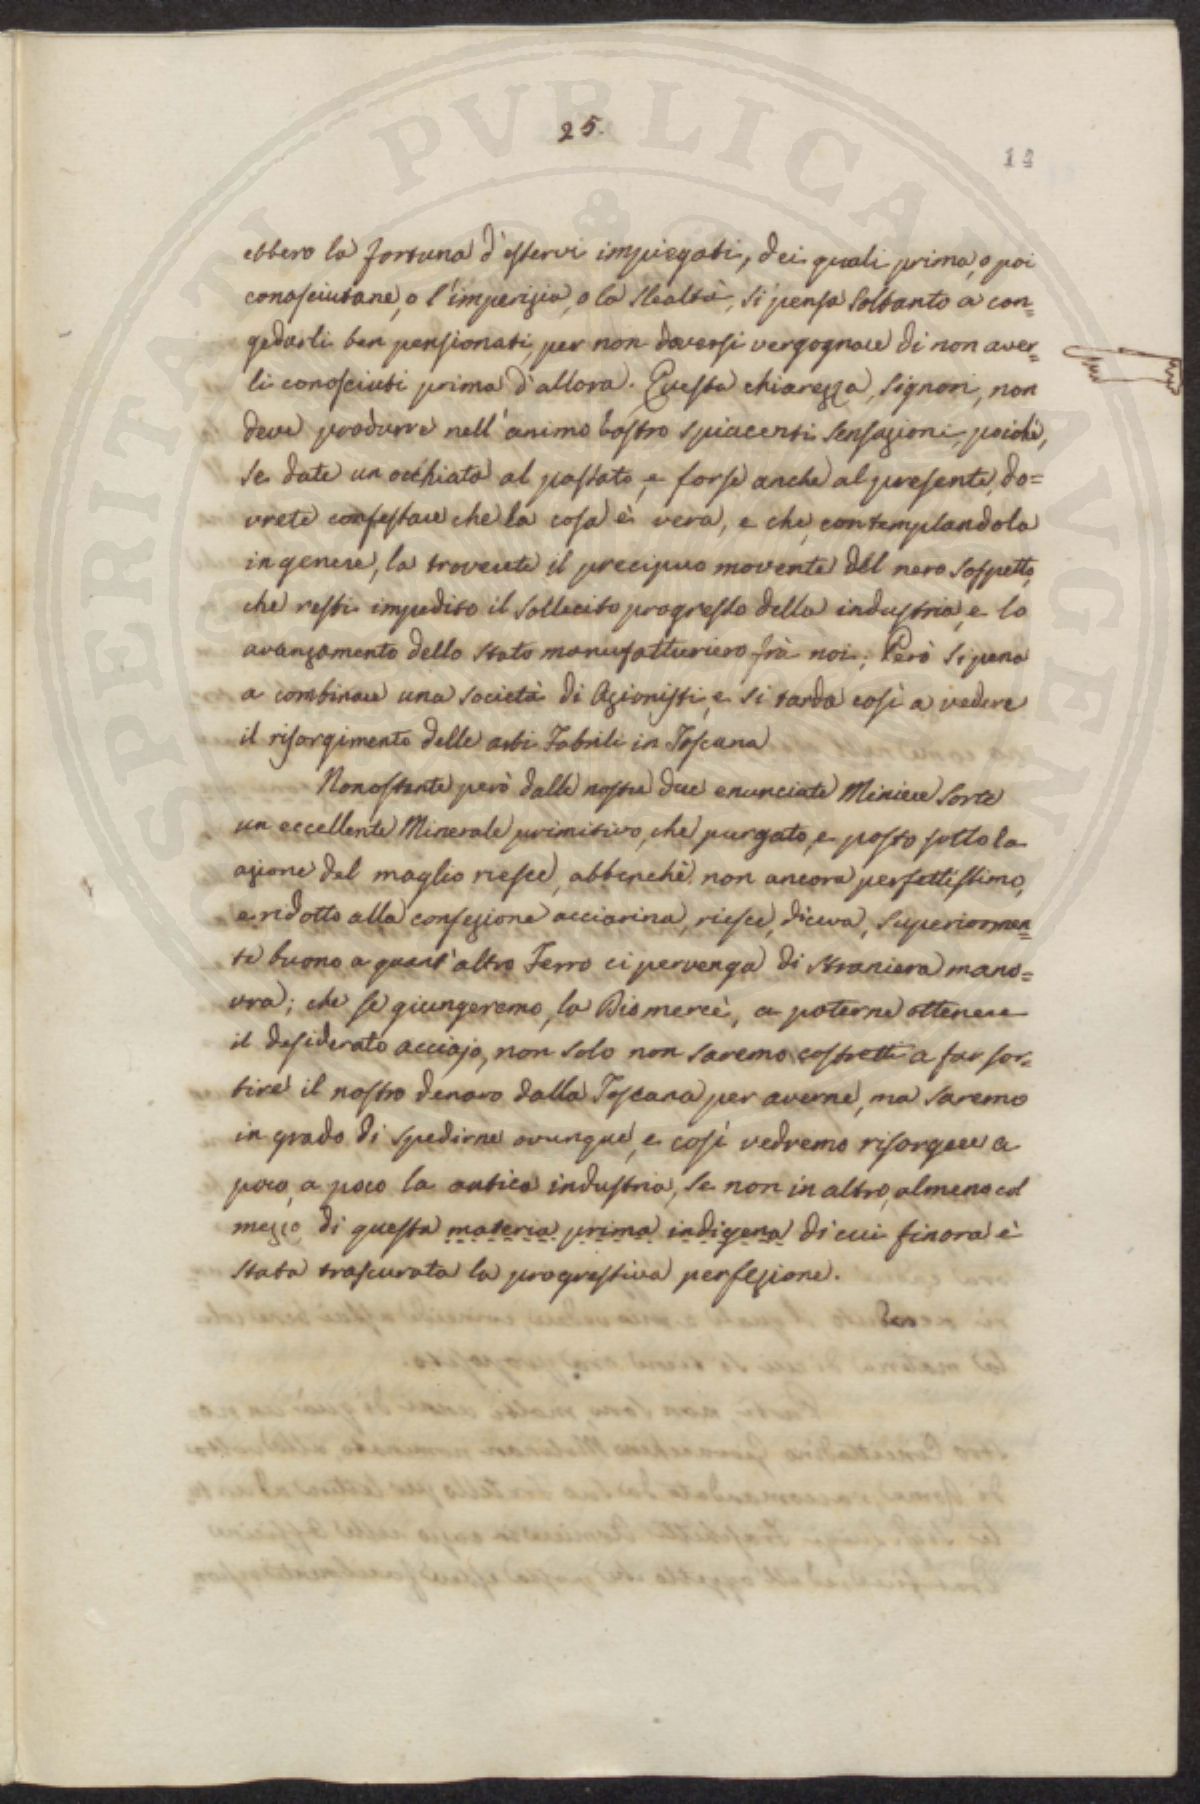 25.
14
ebbero la fortuna d'esservi impiegati, dei quali prima, o poi
conosciutane, o l'imperizia, o la slealtà, si pensa soltanto a con=
gedarli ben pensionati, per non doversi vergognare di non aver=
li conosciuti prima d'allora. Questa chiarezza, Signori, non
deve produrre nell'animo vostro spiacenti sensazioni, poichè,
se date un occhiata al passato, e forse anche al presente, do=
vrete confessare che la cosa è vera, e che, contemplandola
in genere, la troverete il precipuo movente del nero sospetto,
che resti impedito il sollecito progresso della industria, e lo
avanzamento dello stato manufatturiero frà noi; Però si pena
a combinare una società di Azionisti, e si tarda così a vedere
il risorgimento delle arti Fabrili in Toscana
Nonostante però dalle nostre due enunciate Miniere sorte
un eccellente Minerale primitivo, che purgato, e posto sotto la
azione del maglio riesce, abbenchè non ancora perfettissimo,
e ridotto alla confezione acciarina, riesce, diceva, superiormen=
te buono a quant'altro Ferro ci pervenga di straniera mano=
vra; che se giungeremo, la Dio mercè, a poterne ottenere
il desiderato acciajo, non solo non saremo costretti a far sor=
tire il nostro denaro dalla Toscana per averne, ma saremo
in grado di spedirne ovunque, e così vedremo risorgere a
poco, a poco la antica industria, se non in altro, almeno col
mezzo di questa materia prima indigena di cui finora è
stata trascurata la progressiva perfezione.